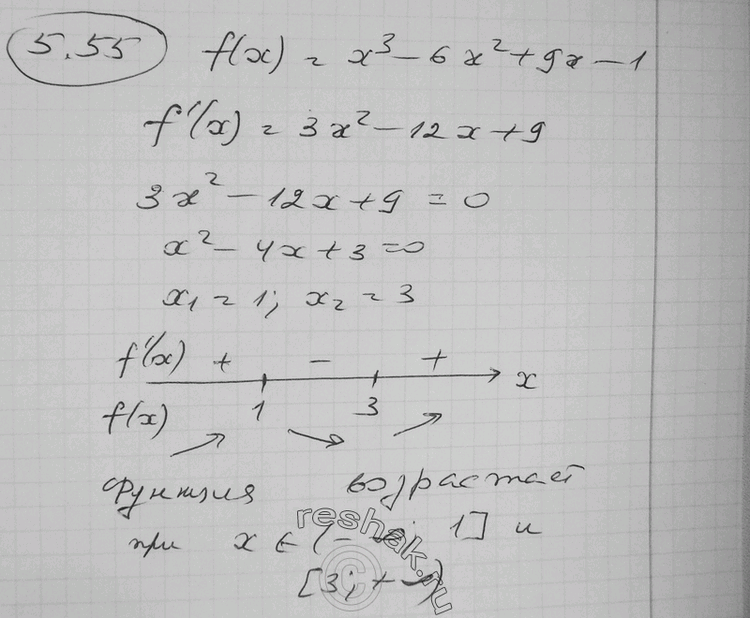 5.55 f(x) = x³ - 6x² + 9x - 1
f'(x) = 3x² - 12x + 9
3x² - 12x + 9 = 0
x² - 4x + 3 = 0
x₁ = 1; x₂ = 3
f'(x) + - + x
f(x) 1 3
Функция возрастает
при x ∈ (-∞; 1] и
[3; +∞)
reshak.ru
©